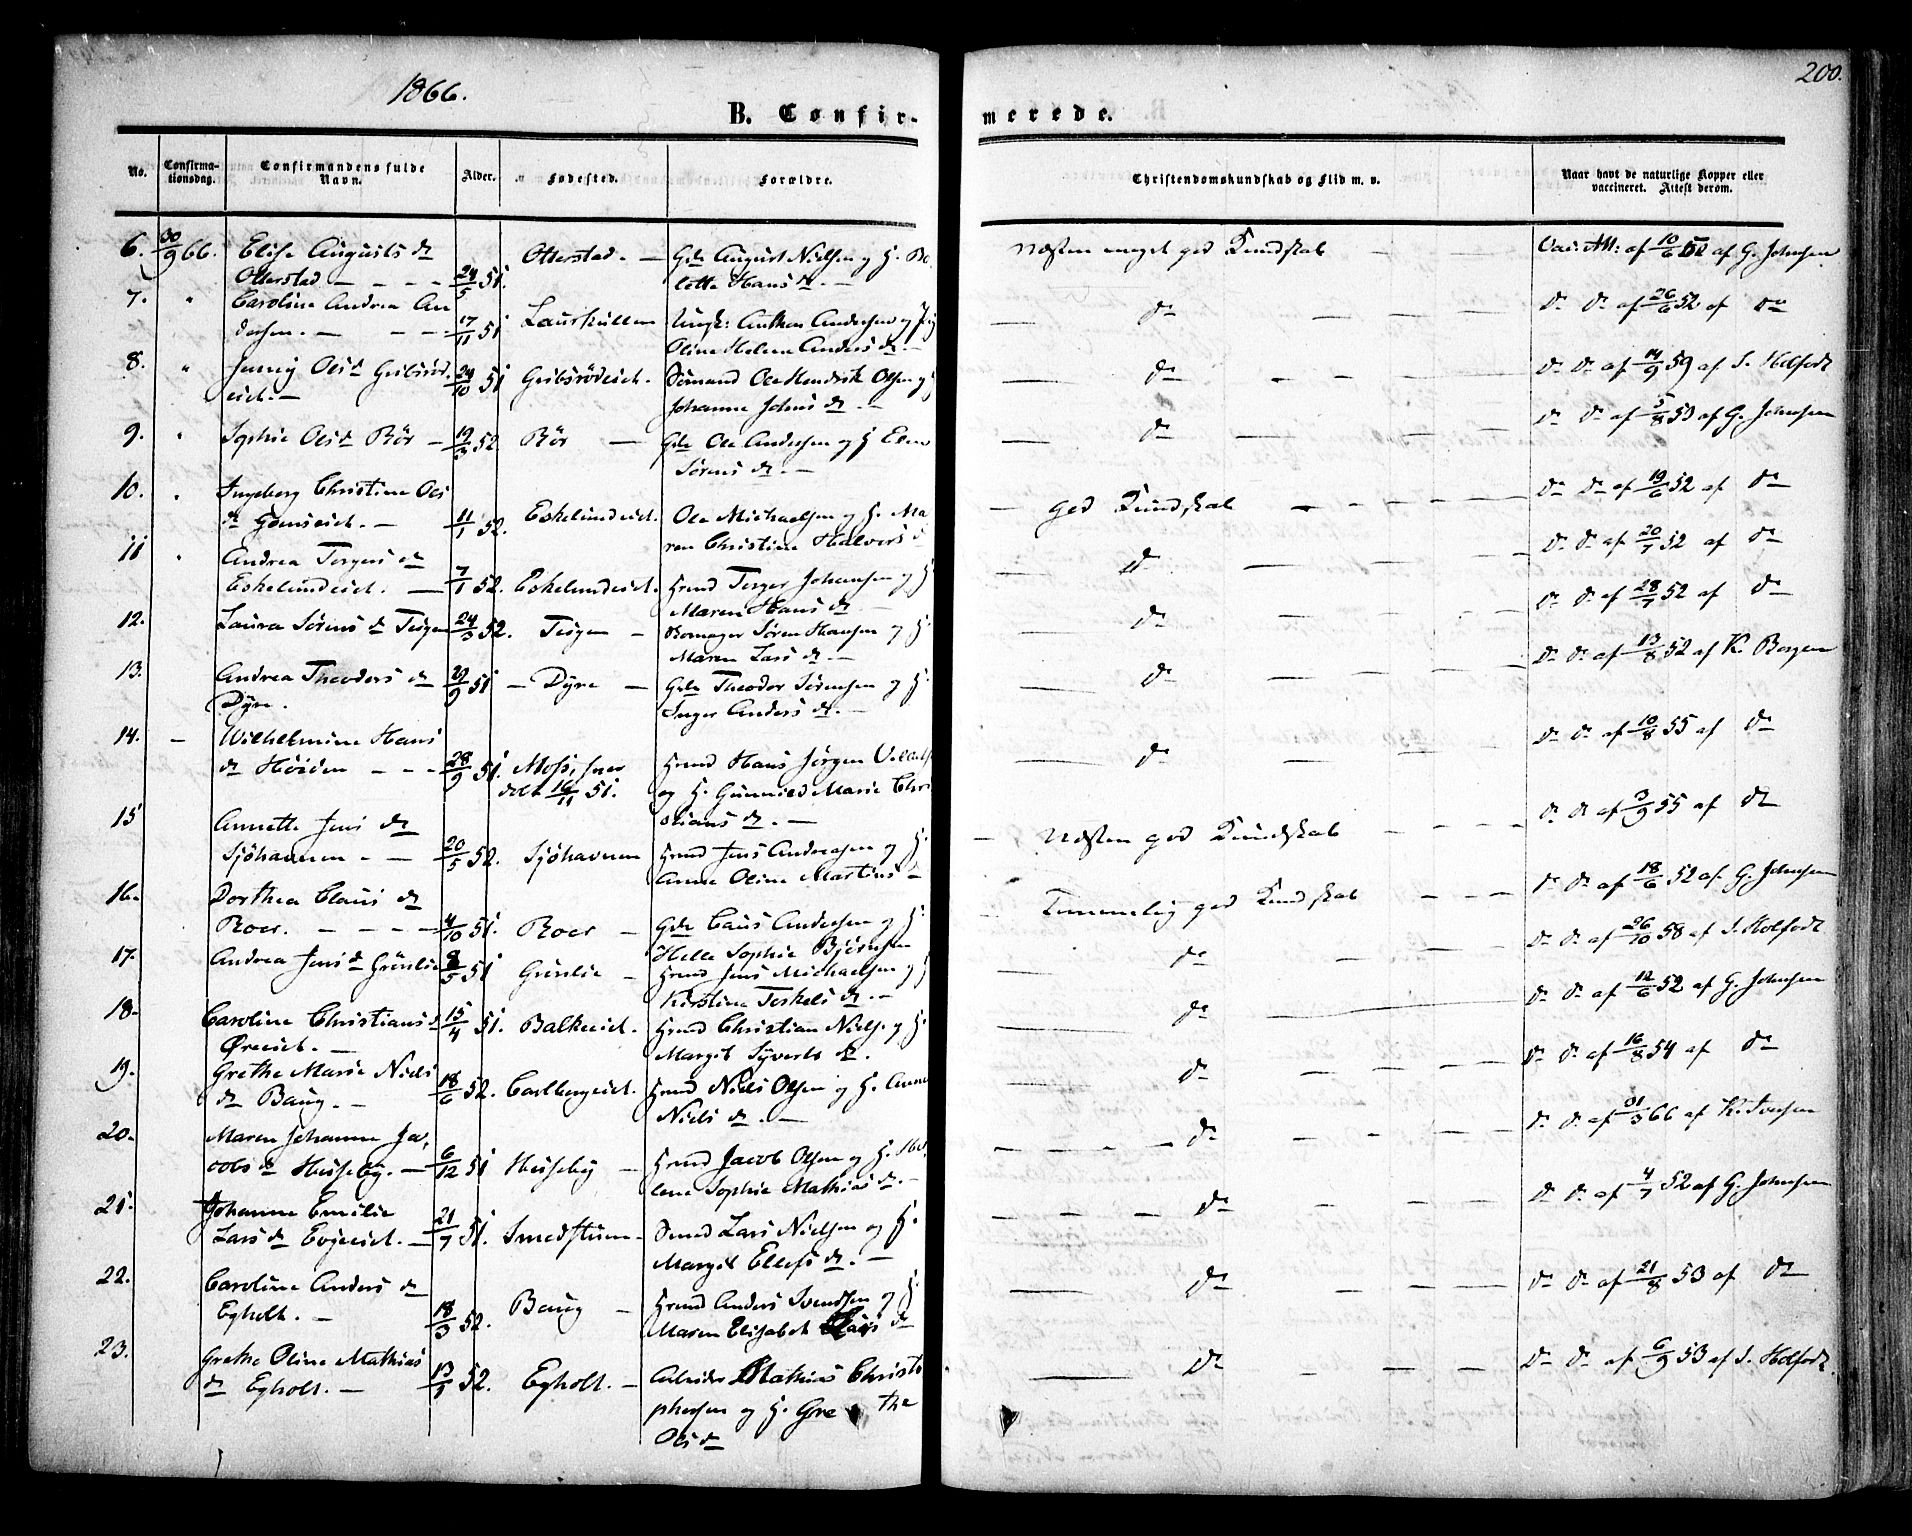 1866.
200.
B. Confir-
merede.
No.
Confirma-
tionsdag.
Confirmandens fulde
Navn.
Alder.
Fødested.
Forældre.
Christendomskundskab og Flid m. v.
Naar havt de naturlige Kopper eller
vaccineret. Attest derom.
6. 30/9 66. Elise Augusts d. Otterstad. — Gde August Nielsen og H. Bo
Otterstad — — — 24/5 51. lette Hans d. —
Næsten meget god Kundskab — — — Vac: Att: af 10/6 52 af G. Johnsen
7. " Caroline Andrea An
dersen. — — — 17/11 51 Laurkullen Ungk: Anthon Andersen og Pig
Oline Helene Anders d. —
d. — — — d. d. af 26/6 52 af d.
8. " Jenny Ols d. Gribsröd
eid. — 24/10 51 Gribsrödeid. Sömand Ole Hendrik Olsen og H
Johanne Johns d. —
d. — — — d. d. af 14/9 59 af S. Holfodt
9. " Sophie Ols d. Rör — 19/3 52 Rör — Gde Ole Andersen og H Elen
Sörens d. —
d. — — — d. d. af 5/8 53 af G. Johnsen
10. " Ingeborg Christine Ols
d. — 11/1 52. Eskelundeid. Ole Michaelsen og H. Ma
ren Christine Halvors d
God Kundskab — — — d. d. af 19/6 52 af d.
11 " Andrea Torgers d.
Eskelundeid. — 7/1 52. Eskelundeid. Hmd Torger Johansen og H
Maren Hans d. —
d. — — — d. d. af 20/7 52 af d.
12. Laura Sörens d. Tesgen 24/3 52. Tesgen — Sören Hansen og H.
Maren Lars d. —
d. — — — d. d. af 28/7 52 af d.
13. Andrea Theodors d.
Dyre. 29/9 51 — Dyre — Gde Theodor Sörensen og H.
Inger Anders d. —
d. — — — d. d. af 13/8 52 af K. Borgen
14. — Wilhelmine Hans
d. Höiden — — — 28/9 51. Moss, fner
delt 16/11 51. Hmd Hans Jörgen
og H. Gunnild Marie Chri
stians d. —
d. — — — d. d. af 10/8 55 af d.
15 Annette Jens d.
Sjöhavnen — — 20/5 52. Sjöhavnen Hmd Jens Andreasen og H.
Anne Oline Martins —
Næsten god Kundskab — — — d. d. af 3/9 55 af d.
16. Dorthea Claus d.
Roer. — — — 4/10 51. Roer — Gde Claus Andersen og H.
Helle Sophie Björnsen
Temmelig god Kundskab — — — d. d. af 18/6 52 af G. Johnsen
17. Andrea Jens d. Grönlie 8/5 51 Grönlie — Hmd Jens Michaelsen og H
Kirstine Torkels d. —
d. — — — d. d. af 26/10 58 af S. Holfodt
18. Caroline Christians d
Øreeid. — 15/4 51. Balkeeid. Hmd Christian Niels. og H.
Margit Syverts d.
d. — — — d. d. af 12/6 52 af G. Johnsen
19. Grethe Marie Niels
d. Baug. — 18/6 52. Carlbergeid. Hmd Niels Olsen og H. Anne
Niels d. —
d. — — — d. d. af 16/8 54 af d.
20. Maren Johanne Ja,
cobs d. Huseby. — 6/12 51 Huseby — Hmd Jacob Olsen og H. He,
lene Sophie Mathias d. —
d. — — — d. d. af 31/3 66 af K. Iversen
21. Johanne Emilie
Lars d. Evjeeid. — 21/7 51. Smedstuen — Smed Lars Nielsen og H.
Margit Ellefs d. —
d. — — — d. d. af 4/7 52 af G. Johnsen
22. Caroline Anders d.
Egholt. — 18/3 52. Baug — Hmd Anders Svendsen og H.
Maren Elisabeth Lars d
d. — — — d. d. af 21/8 53 af d.
23. Grethe Oline Mathias
d. Egholt. — 13/1 52. Egholt. — Arbeider Mathias Christo
phersen og H. Grethe
Ols d.
d. — — — d. d. af 6/9 53 af S. Holfodt.